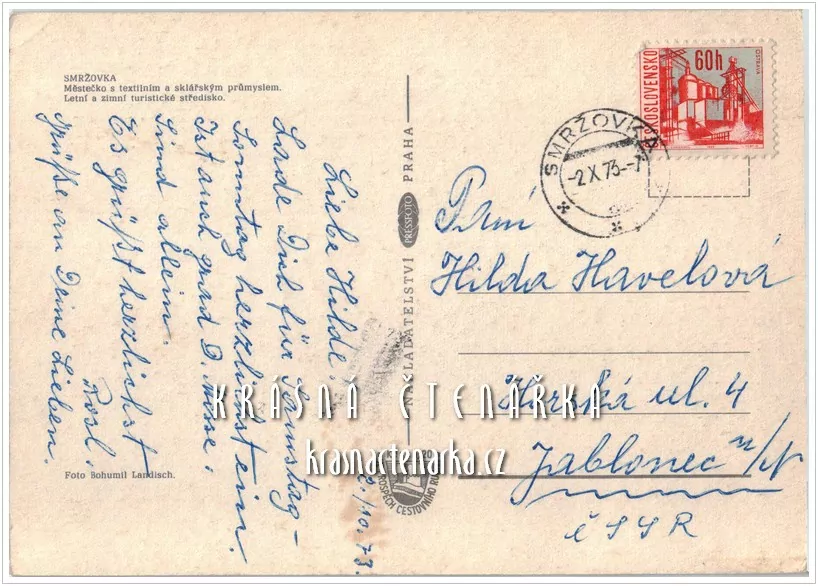 SMRŽOVKA
Městečko s textilním a sklářským průmyslem.
Letní a zimní turistické středisko.
Liebe Hilde!
Lade Dich für Samstag-
Sonntag herzlichst ein.
Ist auch grad D. Messe.
Sind allein.
Es grüßt herzlichst
Rosl.
Grüße an Deine Lieben.
2./10.73.
Foto Bohumil Landisch.
NAKLADATELSTVÍ PRESSFOTO PRAHA
KOSLOVENSKO
60h
OSTRAVA
SMRŽOVKA
-2.X.73.--7
Paní
Hilda Havelová
Horská ul. 4
Jablonec n/N
ČSSR
KRÁSNÁ ČTENÁŘKA
krasnactenarka.cz
ROSPĚCH CESTOVNÍHO RU